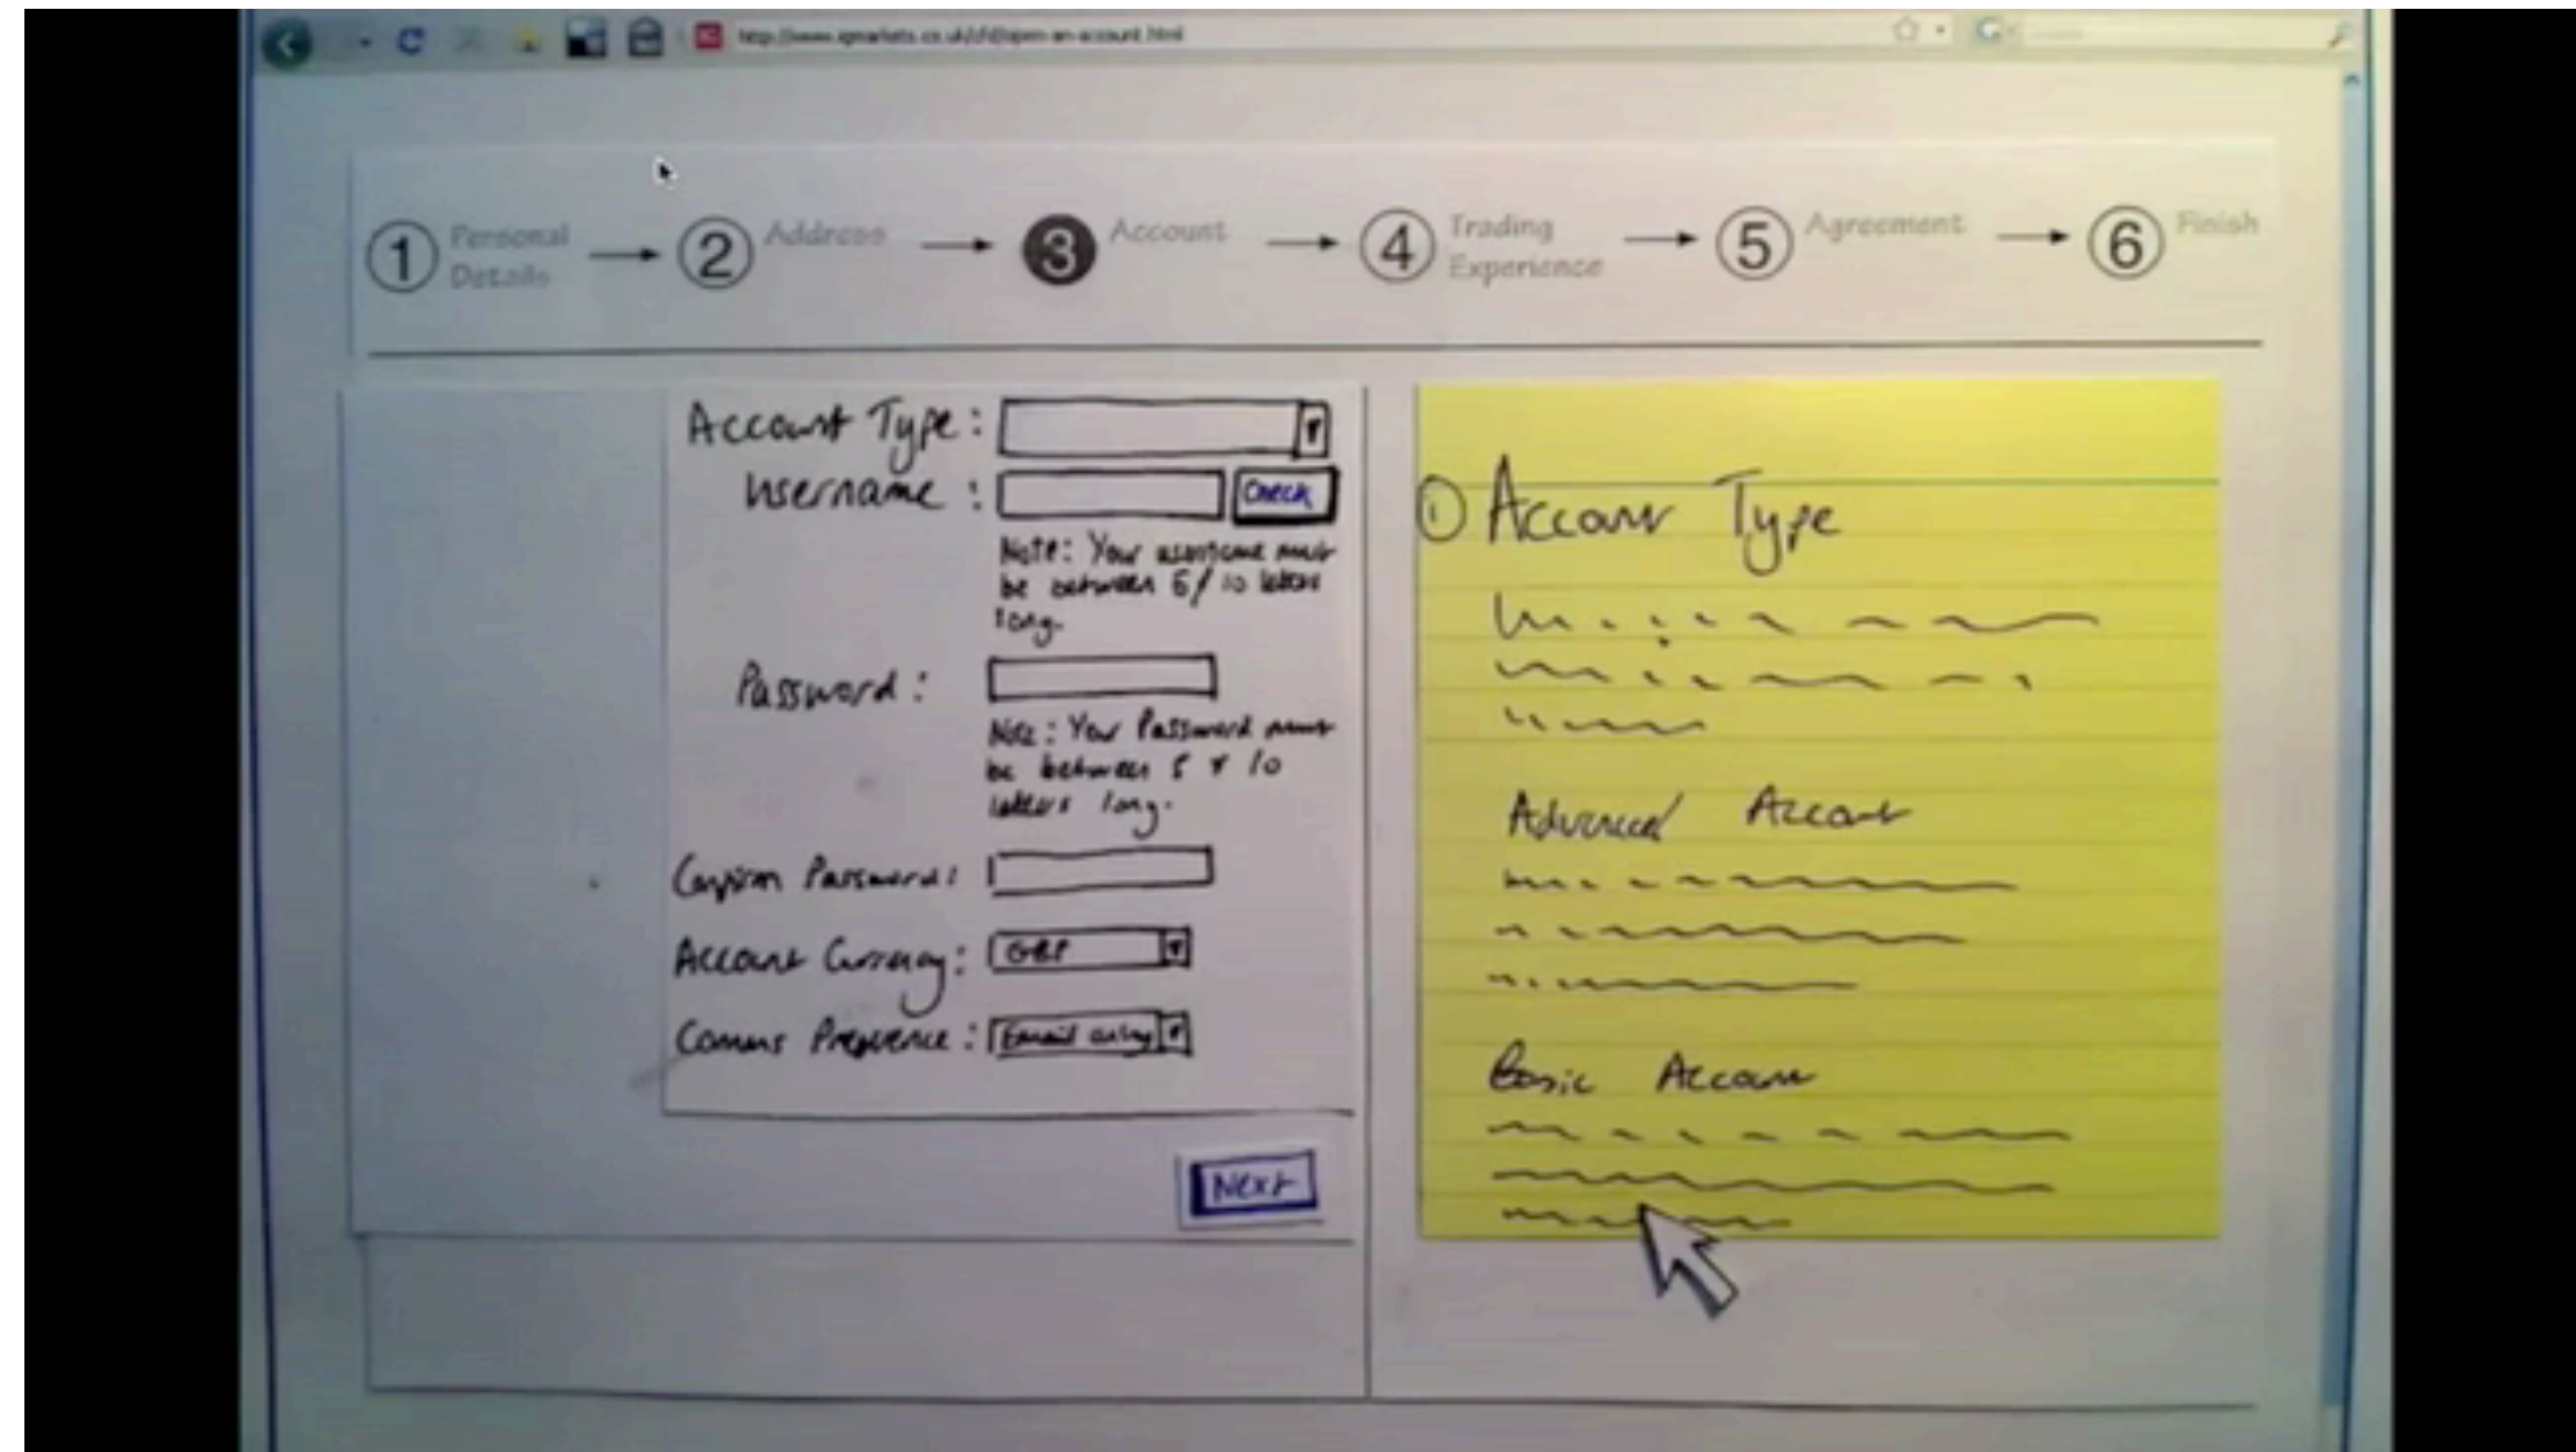 1 Personal Details → 2 Address → 3 Account → 4 Trading Experience → 5 Agreement → 6 Finish
Account Type:
Username : Check
Note: Your username must
be between 6/10 letters
long.
Password:
Note: Your Password must
be between 5 & 10
letters long.
Confirm Password:
Account Currency: GBP
Comms Preference: Email only
Next
i Account Type
Advanced Account
Basic Account